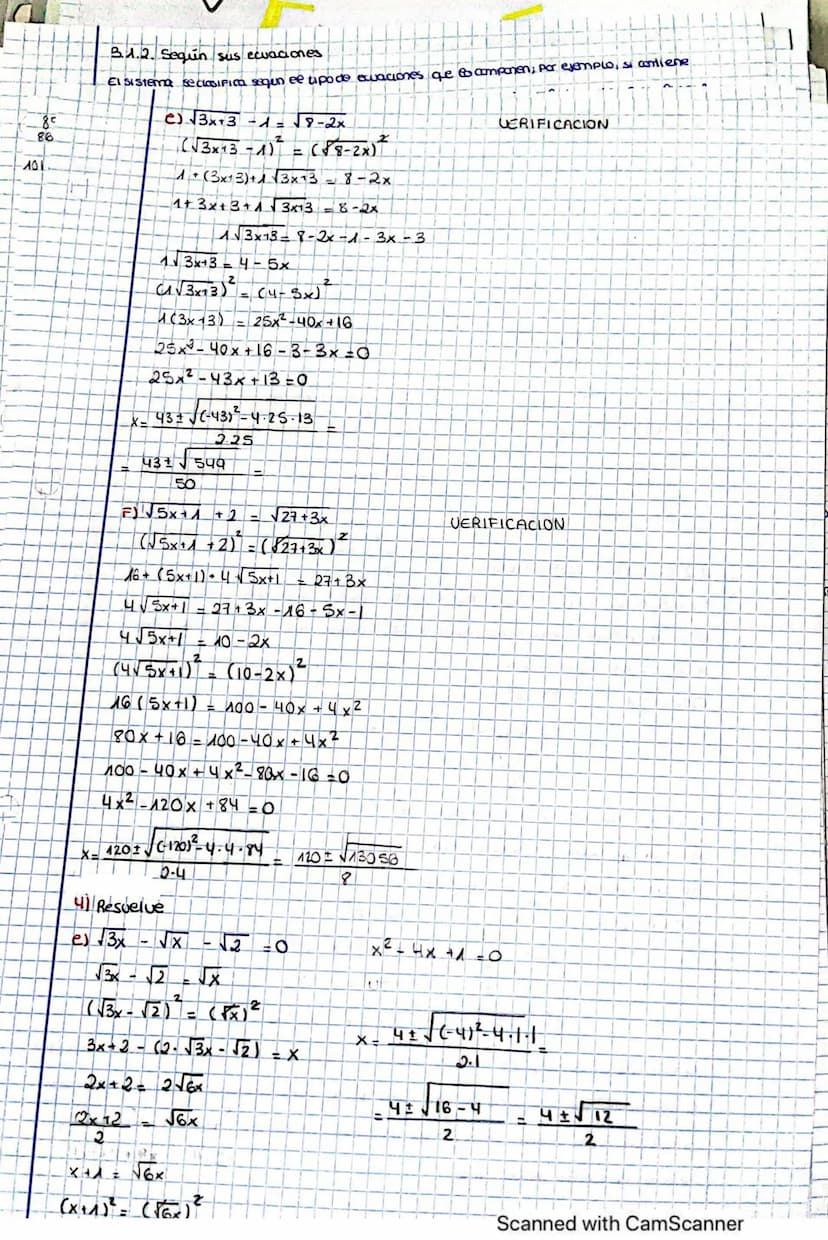 3.1.2. Según sus ecuaciones
El sistema se clasifica según el tipo de ecuaciones que lo componen; por ejemplo, si contiene
85
86
101
e) √3x+3 - 1 = √8-2x
VERIFICACION
(√3x+3 - 1)² = (√8-2x)²
1 + (3x+3)+1√3x+3 = 8-2x
1+3x+3+1√3x+3 = 8-2x
1√3x+3 = 8-2x-1-3x-3
1√3x+3 = 4-5x
(1√3x+3)² = (4-5x)²
1(3x+3) = 25x²-40x+16
25x²-40x+16-3-3x=0
25x²-43x+13=0
x= 43±√(-43)²-4·25·13 =
2·25
= 43±√549 =
50
F) √5x+1 + 2 = √27+3x
VERIFICACION
(√5x+1 +2)² = (√27+3x)²
16+(5x+1)+4√5x+1 = 27+3x
4√5x+1 = 27+3x-16-5x-1
4√5x+1 = 10-2x
(4√5x+1)² = (10-2x)²
16(5x+1) = 100-40x+4x²
80x+16=100-40x+4x²
100-40x+4x²-80x-16=0
4x²-120x+84=0
x= 120±√(-120)²-4·4·84 = 120±√13056
2·4 8
4) Resuelve
e) √3x - √x - √2 = 0
x²-4x+1=0
√3x - √2 = √x
(√3x-√2)² = (√x)²
x= 4±√(-4)²-4·1·1 =
2·1
3x+2-(2·√3x-√2) = x
2x+2= 2√6x
= 4±√16-4 = 4±√12
2 2
2x+2 = √6x
2
x+1 = √6x
(x+1)² = (√6x)²
Scanned with CamScanner